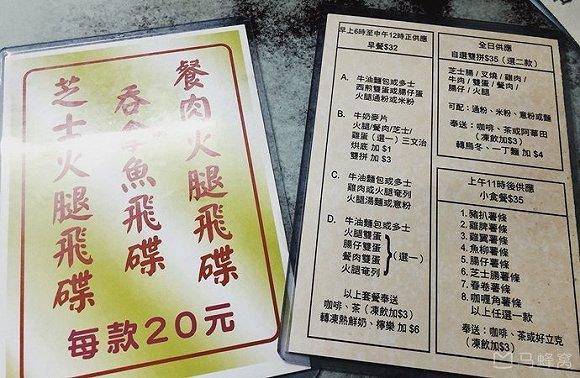 餐肉火腿飛碟
吞拿魚飛碟
芝士火腿飛碟
每款20元
早上6時至中午12時正供應
早餐$32
A. 牛油麵包或多士
西煎雙蛋或腸仔蛋
火腿通粉或米粉
B. 牛奶麥片
火腿/餐肉/芝士/
雞蛋(選一)三文治
烘底 加 $1
雙拼 加 $3
C. 牛油麵包或多士
雞肉或火腿奄列
火腿湯麵或意粉
D. 牛油麵包或多士
火腿雙蛋
腸仔雙蛋
餐肉雙蛋
火腿奄列
(選一)
以上套餐奉送
咖啡、茶(凍飲加$3)
轉凍熱鮮奶、檸樂 加 $6
全日供應
自選雙拼$35(選二款)
芝士腸/叉燒/雞肉/
牛肉/雙蛋/餐肉/
腸仔/火腿
可配:通粉、米粉、意粉或麵
奉送:咖啡、茶或阿華田
(凍飲加$3)
轉烏冬、一丁麵 加 $4
上午11時後供應
小食餐$35
1. 豬扒薯條
2. 雞脾薯條
3. 雞翼薯條
4. 魚柳薯條
5. 腸仔薯條
6. 芝士腸薯條
7. 春卷薯條
8. 咖喱角薯條
以上任選一款
奉送:咖啡、茶或好立克
(凍飲加$3)
马蜂窝